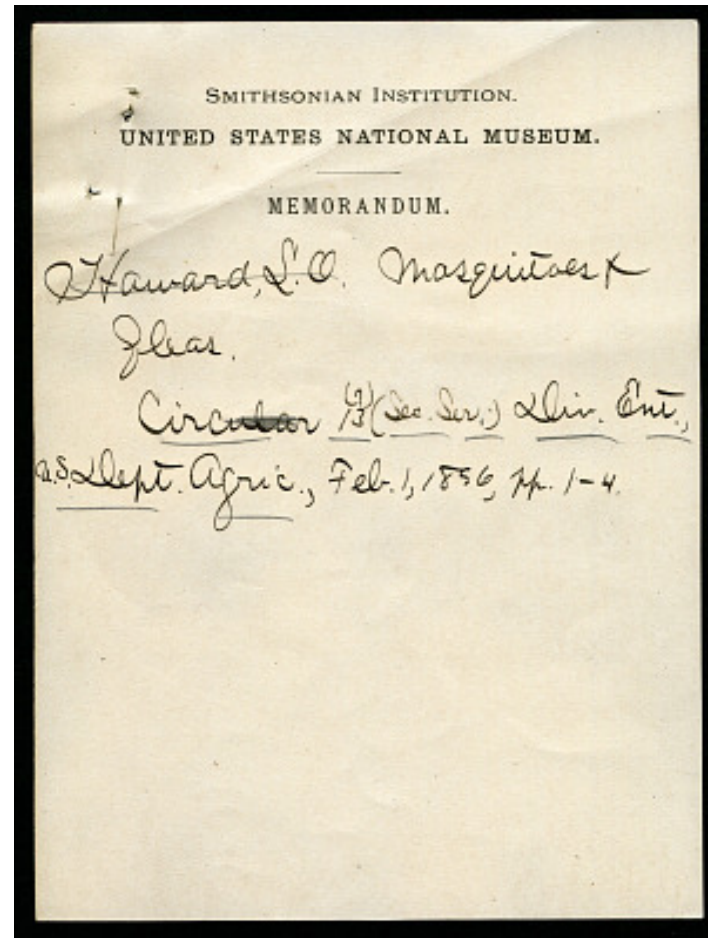 SMITHSONIAN INSTITUTION.
UNITED STATES NATIONAL MUSEUM.
MEMORANDUM.
Howard, L.O. Mosquitoes &
Fleas.
Circular 13 (Sec. Ser.) Div. Ent.,
U.S. Dept. Agric., Feb. 1, 1896, pp. 1-4.